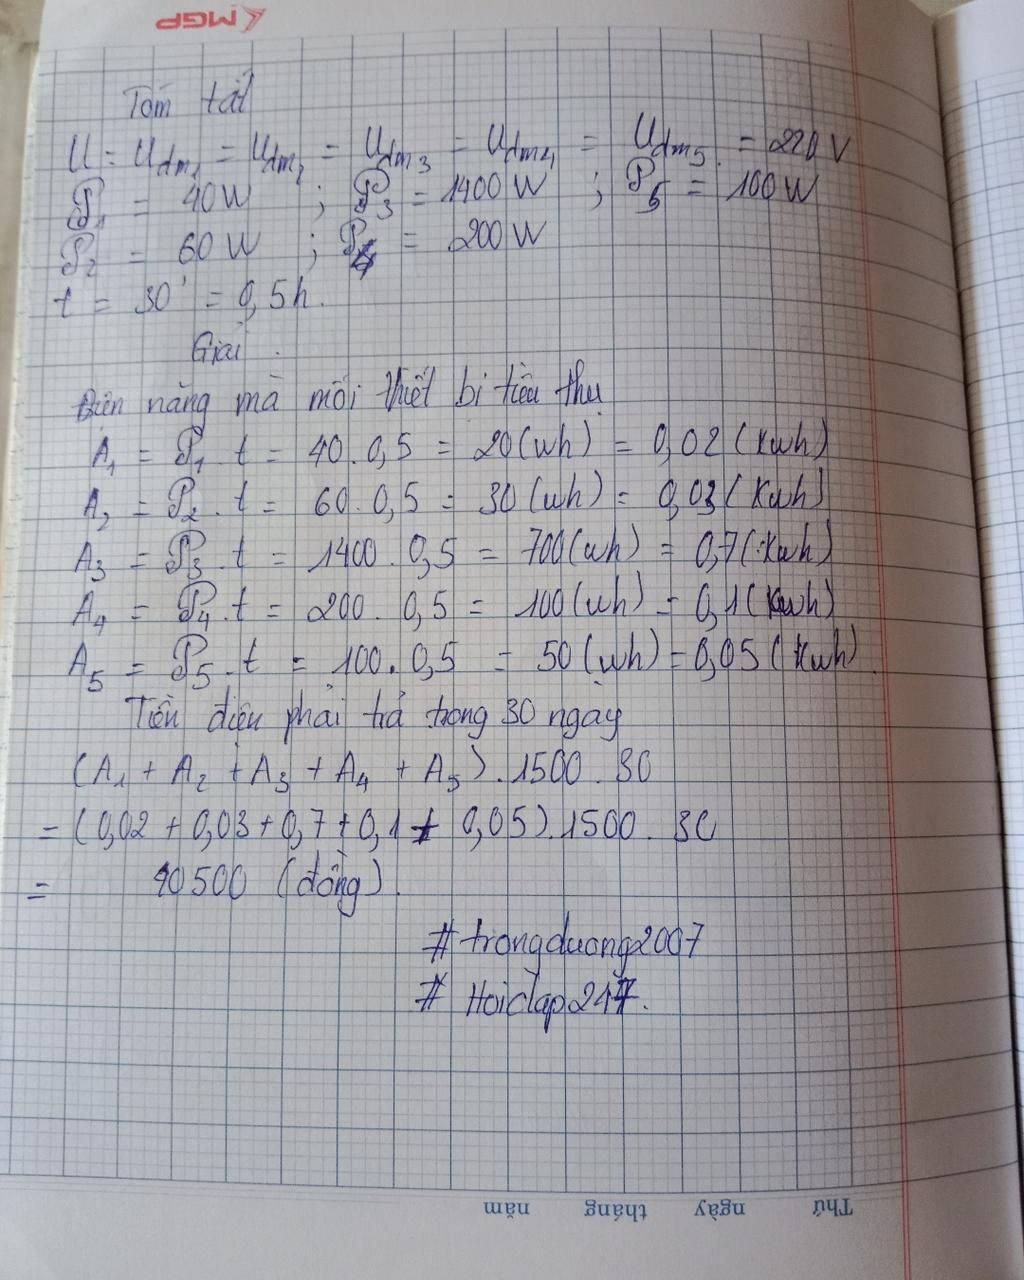 MGP
Tóm tắt
U = Uđm1 = Uđm2 = Uđm3 = Uđm4 = Uđm5 = 220 V
P1 = 40 W ; P3 = 1400 W ; P5 = 100 W
P2 = 60 W ; P4 = 200 W
t = 30' = 0,5h.
Giải.
Điện năng mà mỗi thiết bị tiêu thụ
A1 = P1. t = 40. 0,5 = 20 (wh) = 0,02 (kwh)
A2 = P2. t = 60. 0,5 = 30 (wh) = 0,03 (kwh)
A3 = P3. t = 1400. 0,5 = 700 (wh) = 0,7 (kwh)
A4 = P4. t = 200. 0,5 = 100 (wh) = 0,1 (kwh)
A5 = P5. t = 100. 0,5 = 50 (wh) = 0,05 (kwh)
Tiền điện phải trả trong 30 ngày
(A1 + A2 + A3 + A4 + A5). 1500. 30
= (0,02 + 0,03 + 0,7 + 0,1 + 0,05). 1500. 30
= 40500 (đồng).
# trongduong2007
# Hoidap247.
Thứ ngày tháng năm